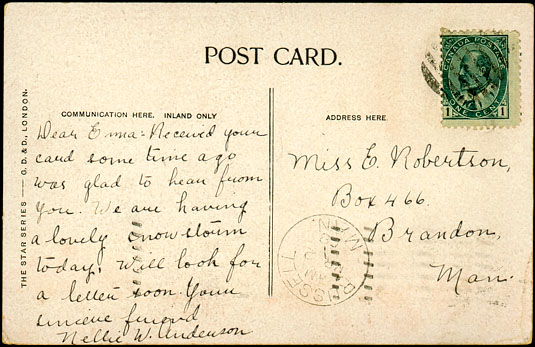 POST CARD.
CANADA POSTAGE
1 ONE CENT 1
THE STAR SERIES — G. D. & D., LONDON.
COMMUNICATION HERE. INLAND ONLY
Dear Emma:- Received your
card some time ago
was glad to hear from
you. We are having
a lovely snow storm
today. Will look for
a letter soon. Your
sincere friend
Nellie W. Anderson
ADDRESS HERE.
Miss E. Robertson,
Box 466.
Brandon,
Man.